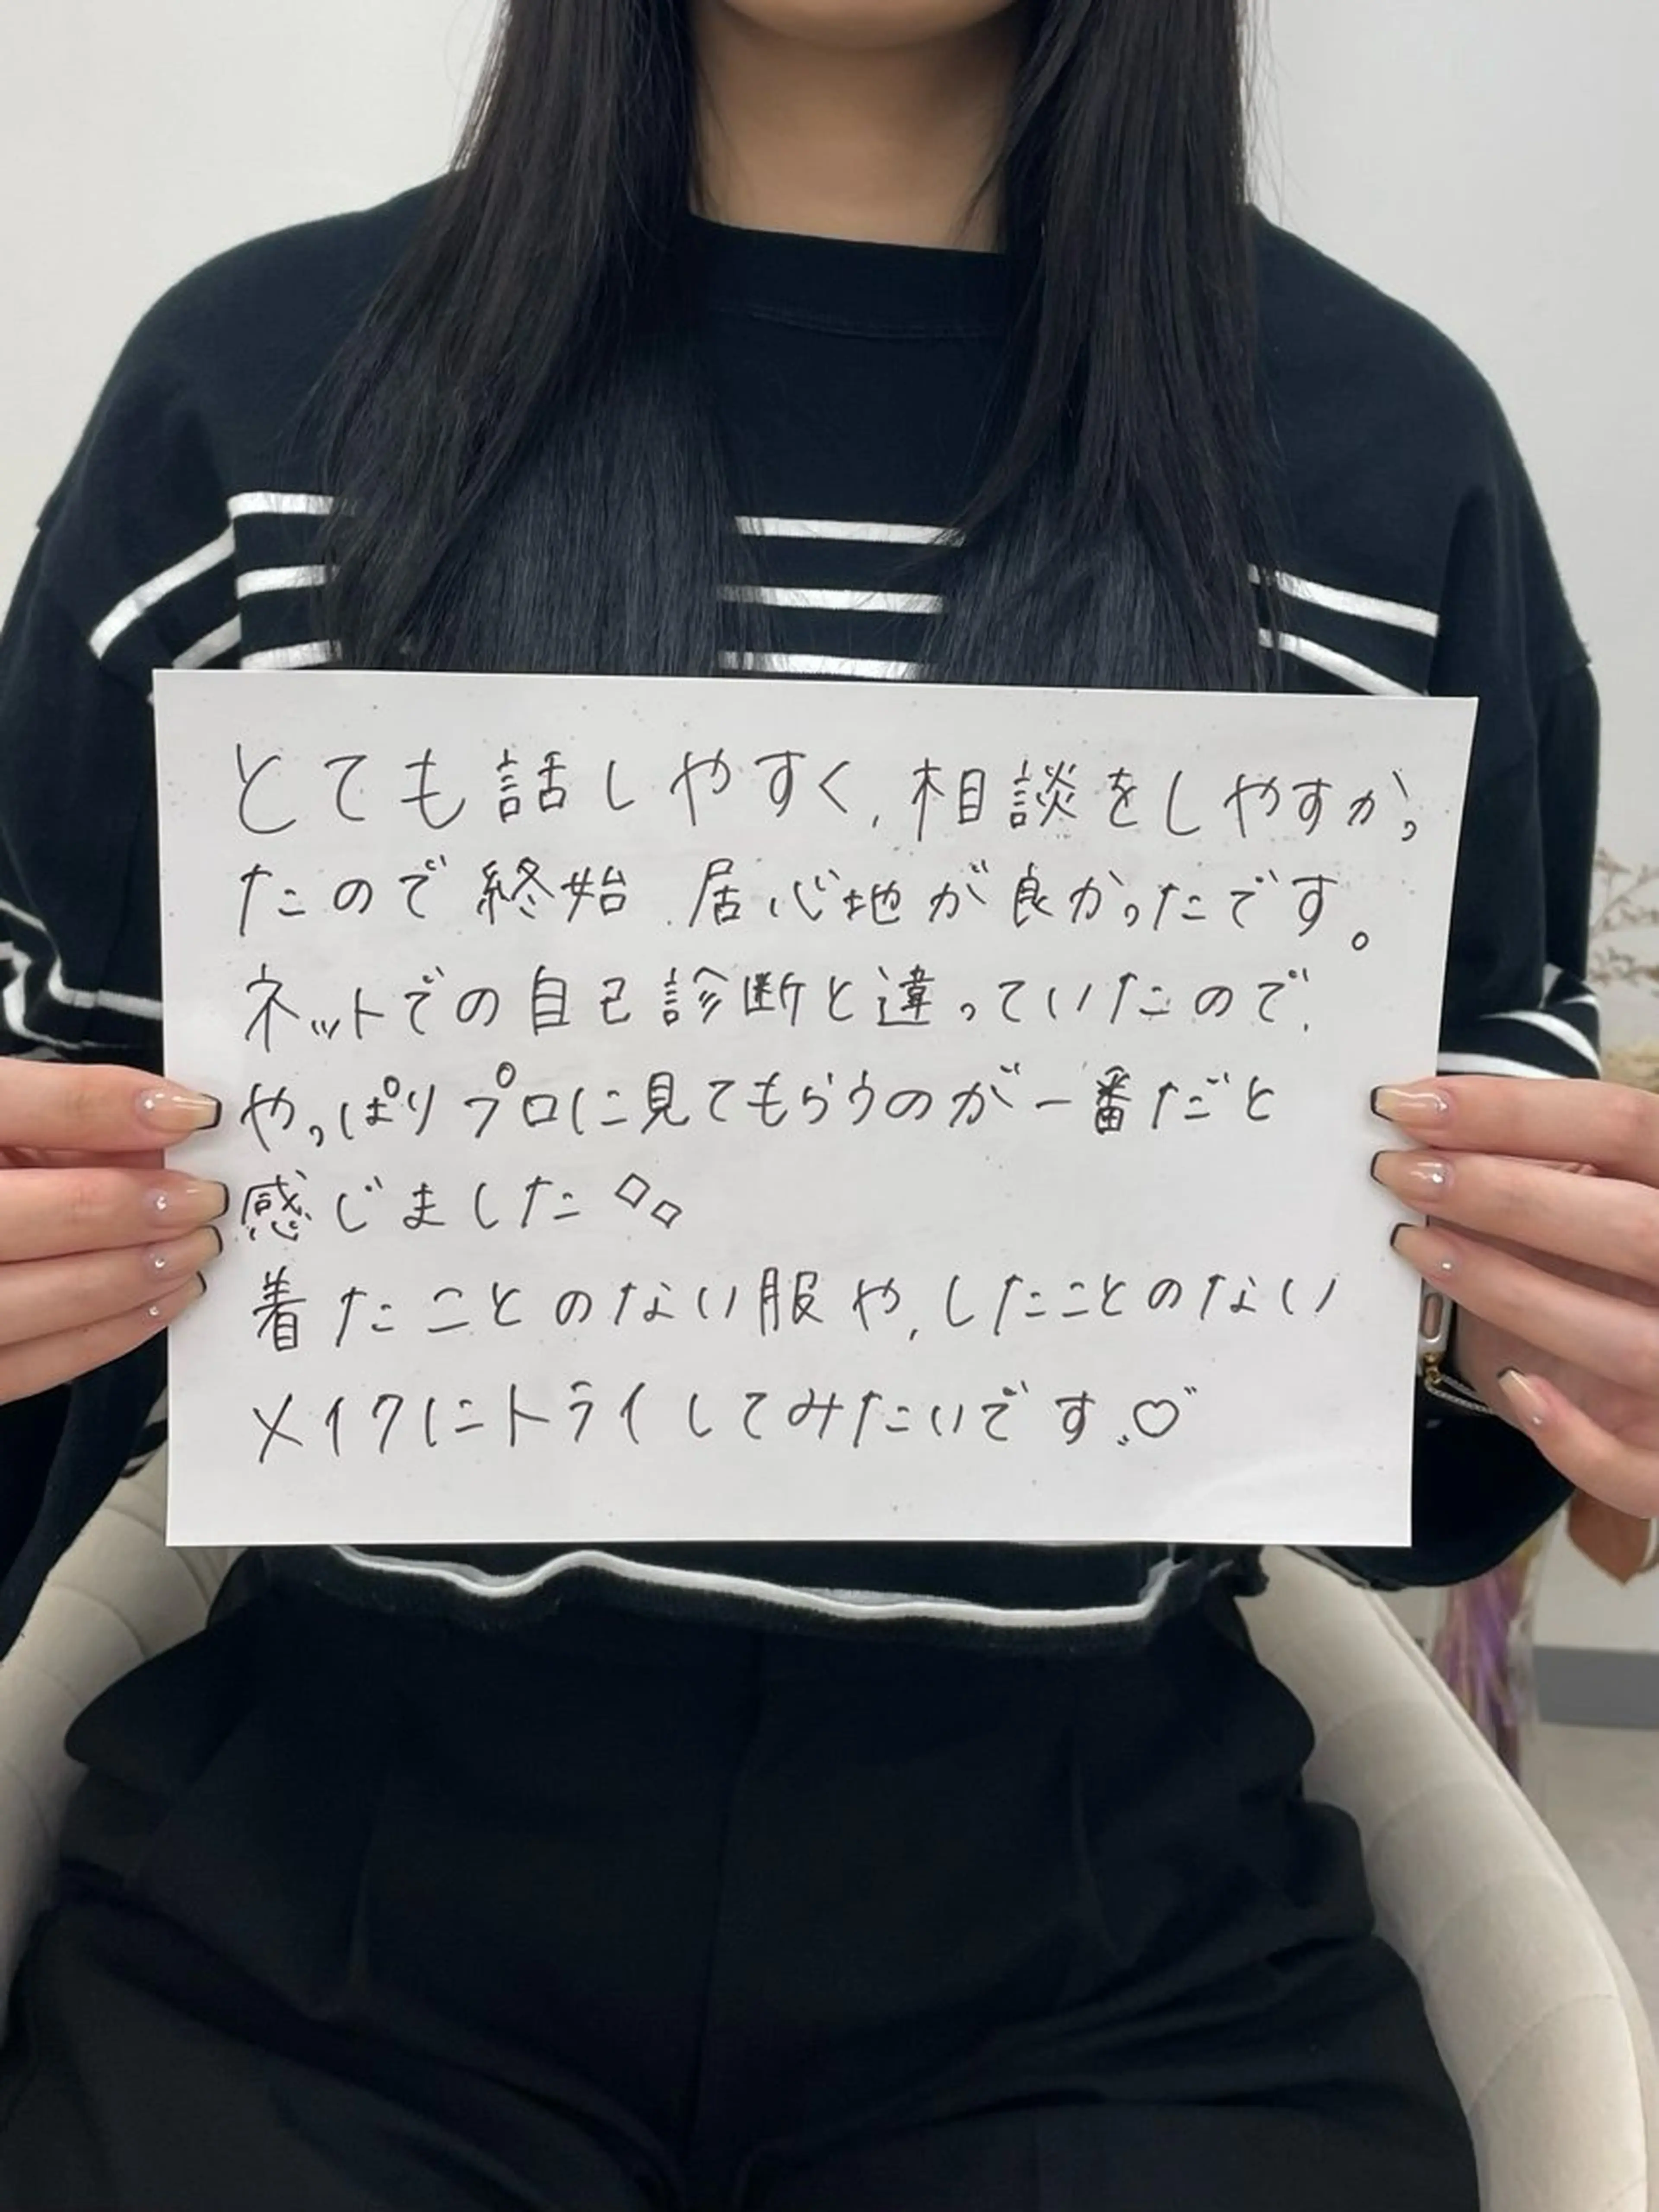 とても話しやすく、相談をしやすかっ
たので終始 居心地が良かったです。
ネットでの自己診断と違っていたので、
やっぱりプロに見てもらうのが一番だと
感じました◇◇
着たことのない服や、したことのない
メイクにトライしてみたいです♡